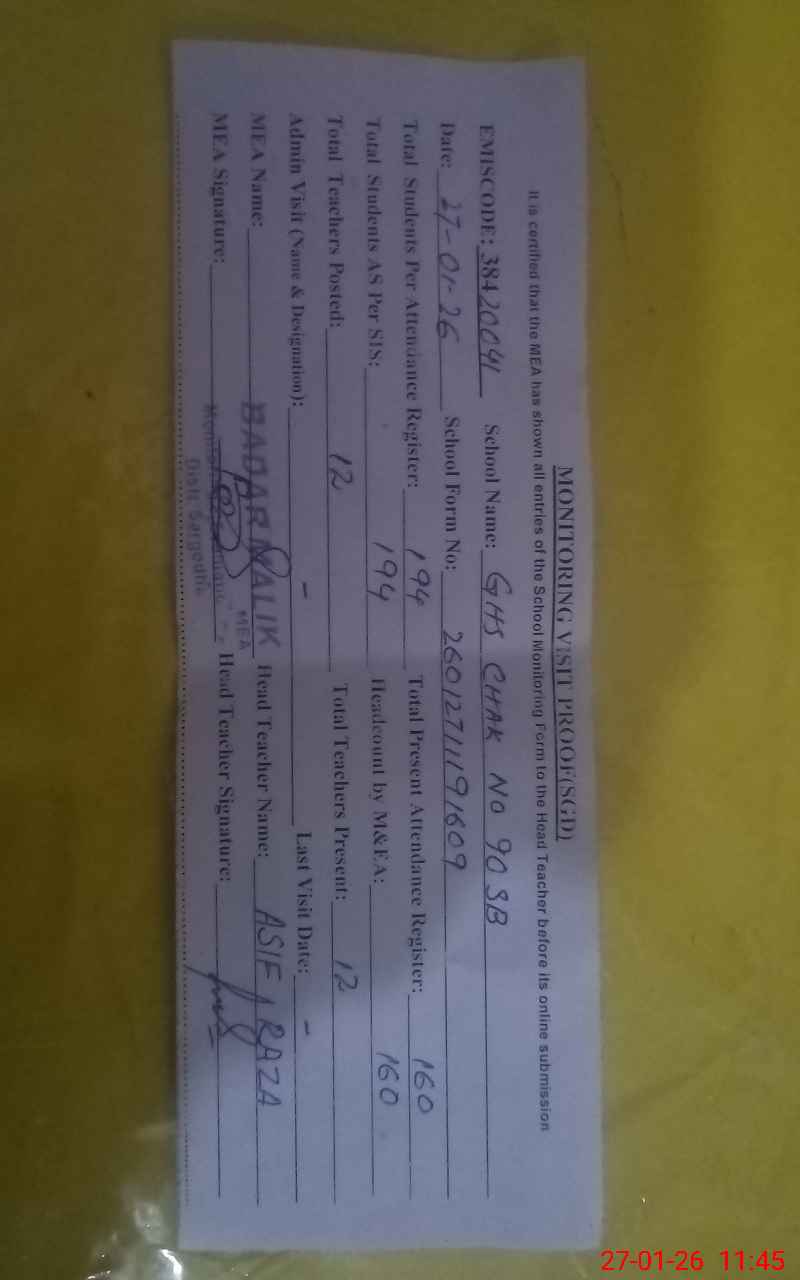 MONITORING VISIT PROOF(SGD)
It is certified that the MEA has shown all entries of the School Monitoring Form to the Head Teacher before its online submission
EMISCODE: 38420041 School Name: GHS CHAK NO 90 SB
Date: 27-01-26 School Form No: 2601271191609
Total Students Per Attendance Register: 194 Total Present Attendance Register: 160
Total Students AS Per SIS: 194 Headcount by M&EA: 160
Total Teachers Posted: 12 Total Teachers Present: 12
Admin Visit (Name & Designation): - Last Visit Date: -
MEA Name: BADAR MALIK Head Teacher Name: ASIF RAZA
MEA
MEA Signature: Head Teacher Signature:
Distt. Sargodha
27-01-26 11:45